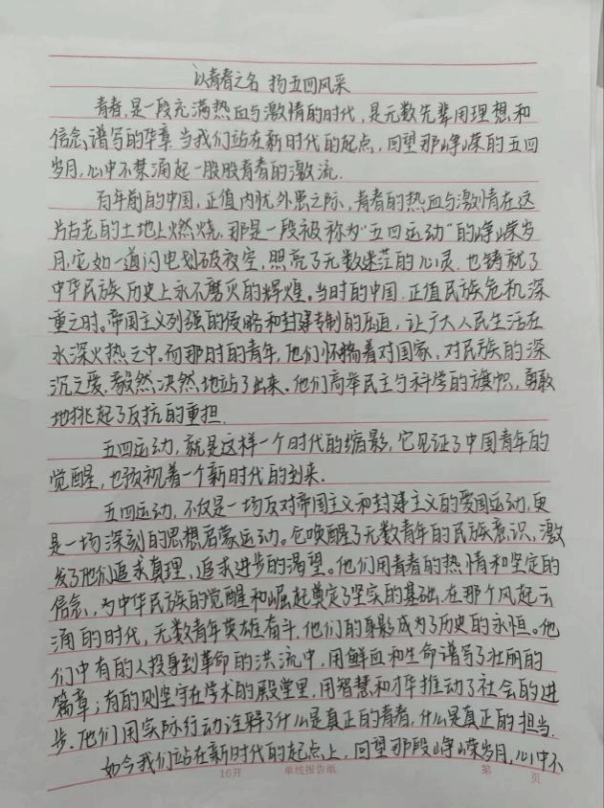 以青春之名 扬五四风采
青春,是一段充满热血与激情的时代,是无数先辈用理想和
信念谱写的华章.当我们站在新时代的起点,回望那峥嵘的五四
岁月,心中不禁涌起一股股青春的激流.
百年前的中国,正值内忧外患之际,青春的热血与激情在这
片古老的土地上燃烧.那是一段被称为“五四运动”的峥嵘岁
月,它如一道闪电划破夜空,照亮了无数迷茫的心灵.也铸就了
中华民族历史上永不磨灭的辉煌。当时的中国,正值民族危机深
重之时。帝国主义列强的侵略和封建专制的压迫,让广大人民生活在
水深火热之中.而那时的青年,他们怀揣着对国家、对民族的深
沉之爱.毅然决然地站了出来.他们高举民主与科学的旗帜,勇敢
地挑起了反抗的重担.
五四运动,就是这样一个时代的缩影,它见证了中国青年的
觉醒,也预视着一个新时代的到来.
五四运动,不仅是一场反对帝国主义和封建主义的爱国运动,更
是一场深刻的思想启蒙运动。它唤醒了无数青年的民族意识,激
发了他们追求真理、追求进步的渴望。他们用青春的热情和坚定的
信念,为中华民族的觉醒和崛起奠定了坚实的基础.在那个风起云
涌的时代,无数青年英雄奋斗.他们的身影成为了历史的永恒.他
们中有的人投身到革命的洪流中,用鲜血和生命谱写了壮丽的
篇章;有的则坚守在学术的殿堂里,用智慧和才华推动了社会的进
步.他们用实际行动诠释了什么是真正的青春,什么是真正的担当.
如今我们站在新时代的起点上,回望那段峥嵘岁月,心中不
16开 单线报告纸 第 页